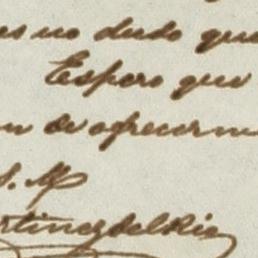 es no dudo que
Espero que
n de ofrecerm
S. M
rtinez del Rio